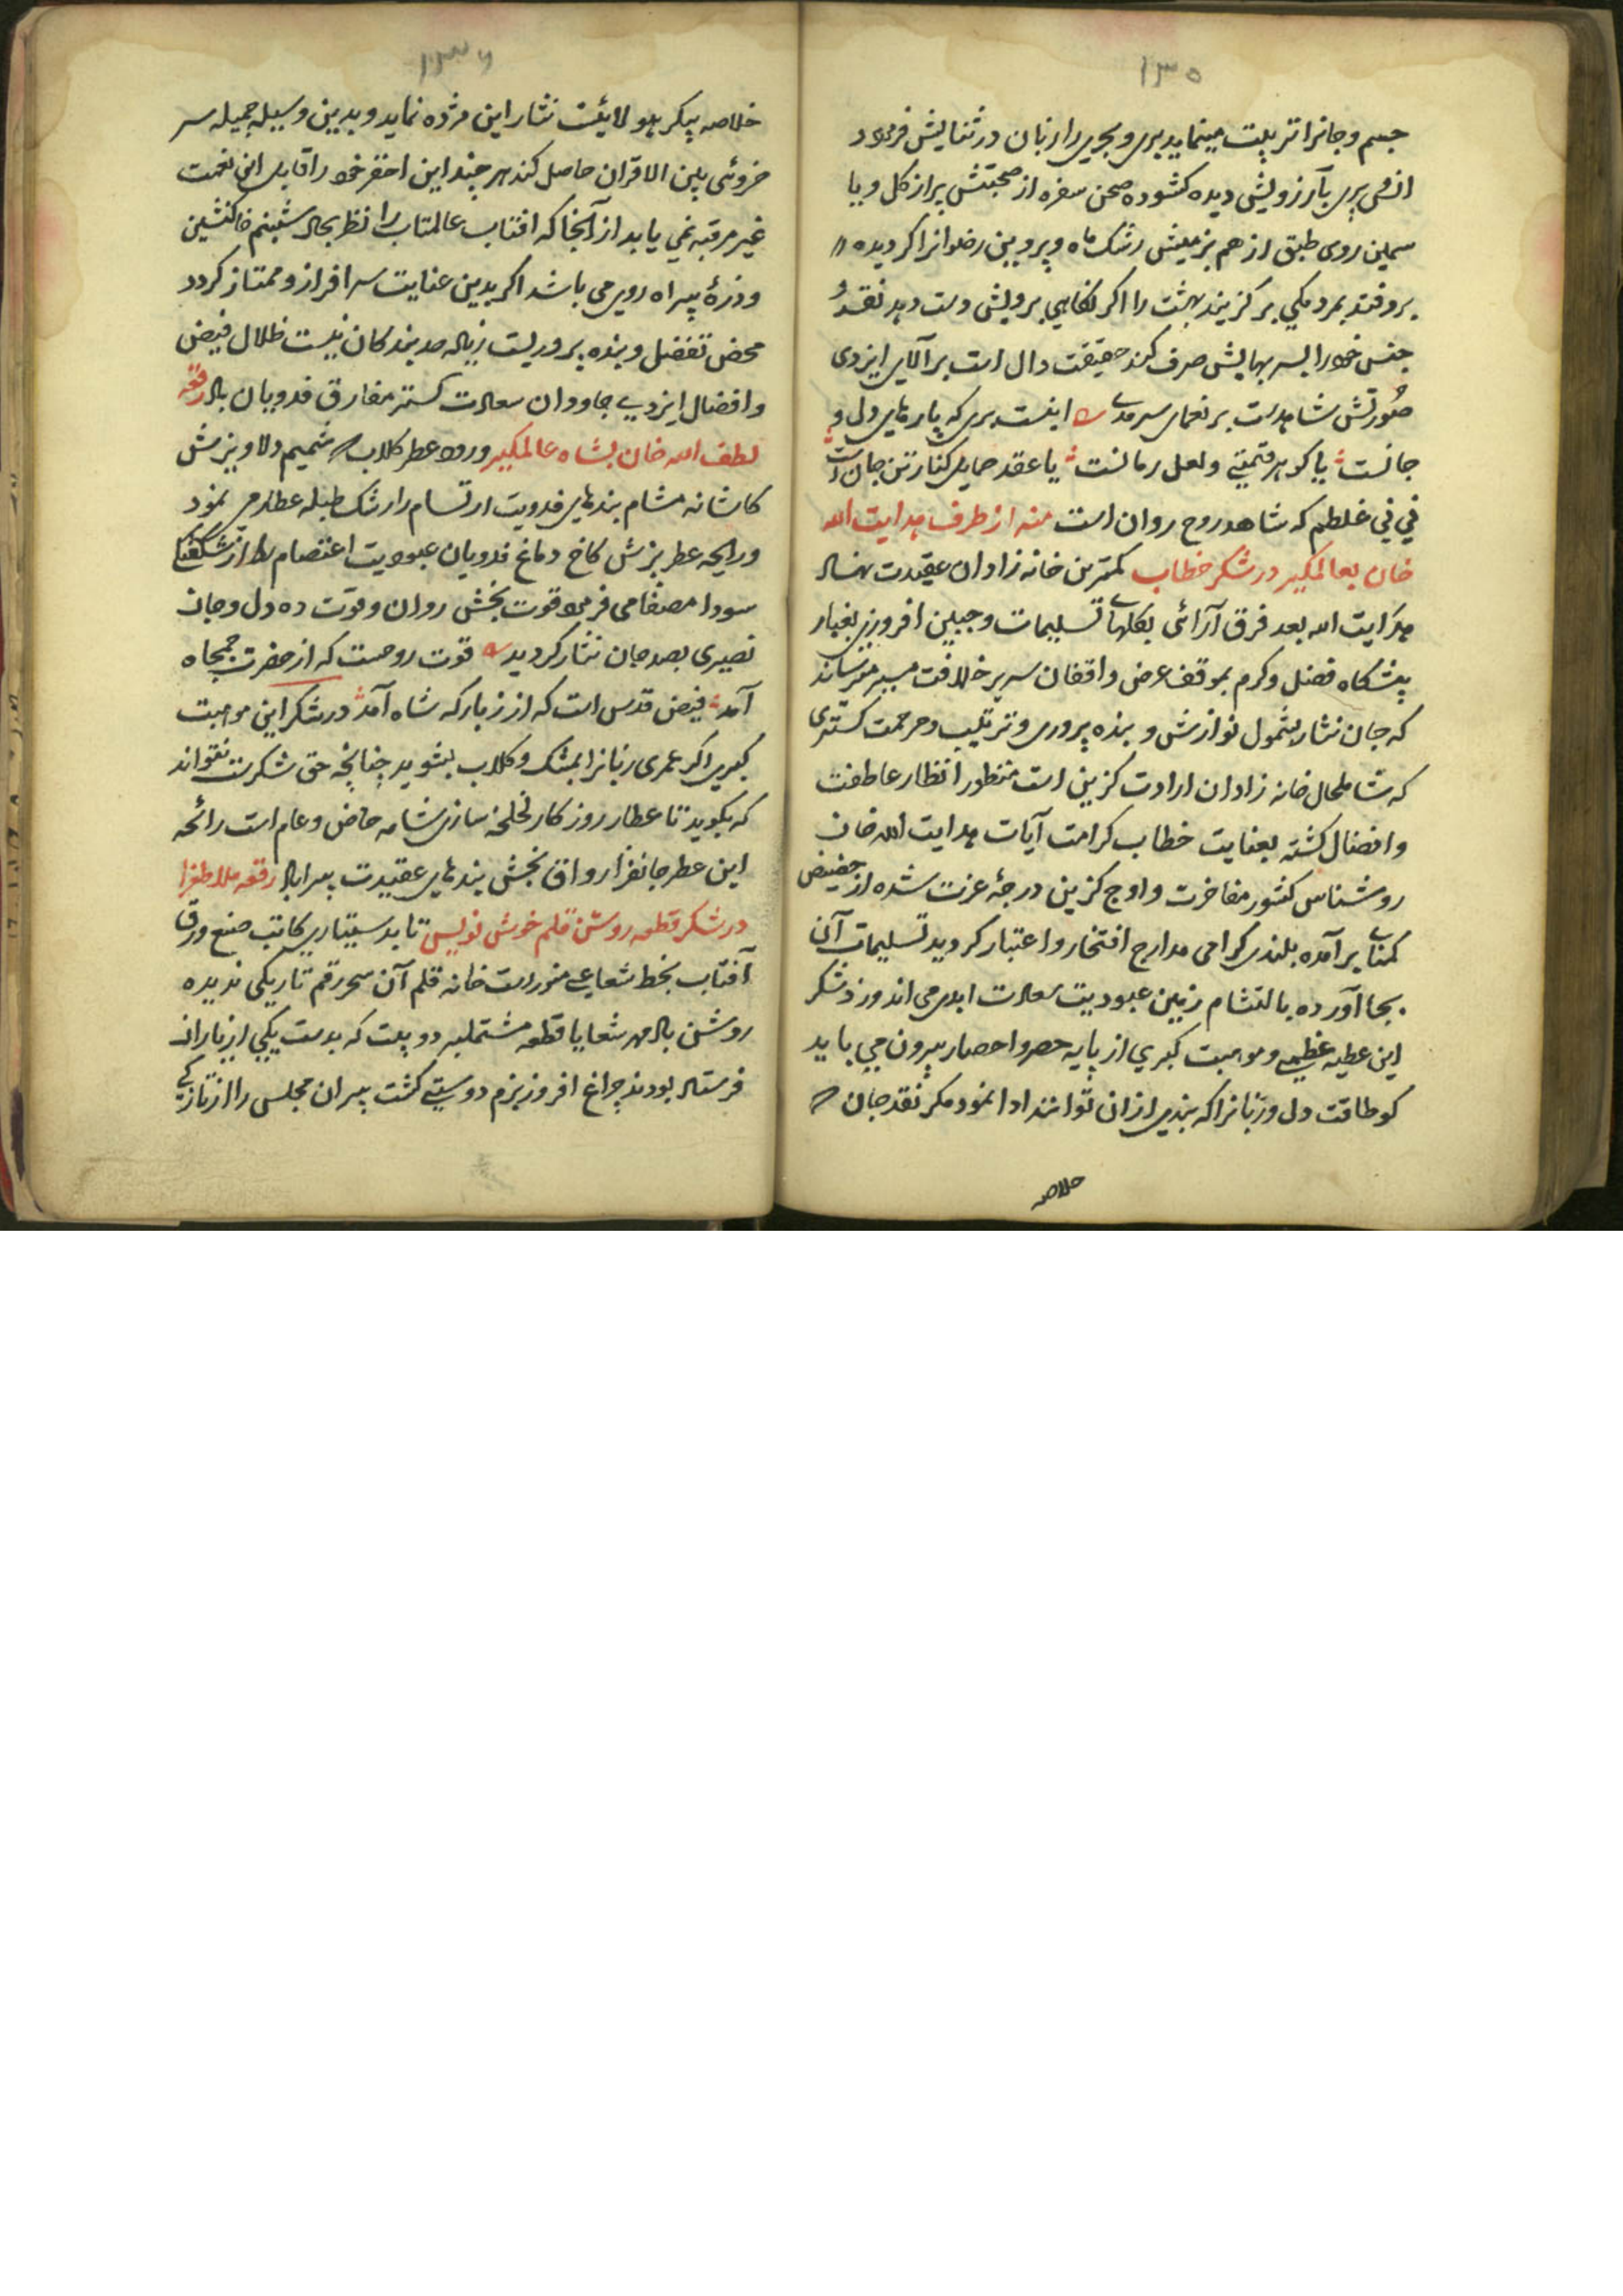 ۱۳۵
جسم و جانرا تربیت مینماید بری و بحری را زبان در ثنایش فرمود
سمین روی طبق از هم بزمیش رشک ماه و پروین رضوانرا کر دیده
بروفتد بمردمکی برکزیند بهشت را اکر نکاهی برویش دست دهد نقد و
جنس خود را بسر بهایش صرف کند حقیقت دال است بر آلای ایزدی
صورتش شاهدیست بر نعمای سرمدی اینست بری که پارهای دل و
جانست یا کوهر قیمتی و لعل رمانست یا عقد حمایل کنار تن جان است
نی نی غلطم که شاهد روح روان است منه از طرف هدایت الله
خان بعالمکیر در شکر خطاب کمترین خانه زادان عقیدت نهاد
هدایت الله بعد فرق آرائی بکلهای تسلیمات و جبین افروزی بغبار
پیشکاه فضل و کرم بموقف عرض واقفان سریر خلافت مصیر میرساند
که جان نثار بشمول نوازش و بنده پروری و تربیت و مرحمت کستری
که شاملحال خانه زادان ارادت کزین است منظور انظار عاطفت
و افضال کشته بعنایت خطاب کرامت آیات هدایت الله خان
روشناس کشور مفاخرت و اوج کزین درجهٔ عزت شده از حضیض
کمنامی برآمده بلندی کرامی مدارج افتخار و اعتبار کردید تسلیمات آن
بجا آورده بالتثام زمین عبودیت سعادت ابدی می اندوزد شکر
این عطیه عظیمی و موهبت کبری از پایه حصر و احصار بیرون می یابد
کو طاقت دل و زبانرا که بندی ازان توانند ادا نمود مکر نقد جان
خلاصه
۱۳۶
خلاصه پیکر هیولائیت نثار این مژده نماید و بدین وسیله جمیله سر
خروئی بین الاقران حاصل کند هر چند این احقر خود را قابل این نعمت
غیر مرقبه نمی یابد از آنجا که افتاب عالمتاب را نظر بحال شبنم خاکنشین
و ذرهٔ بیراه روی می باشد اکر بدین عنایت سرافراز و ممتاز کردد
محض تفضل و بنده پروریست زیاده حد بندکان نیست ظلال فیض
و افضال ایزدی جاودان سعادت کستر مفارق فدویان باد رقعه
لطف الله خان بشاه عالمکیر ورود عطر کلاب شمیم دلاویزش
کاشانه مشام بندهای فدویت ارتسام را رشک طبله عطار می نمود
و رایحه عطربزش کاخ دماغ فدویان عبودیت اعتصام را از مشکفتنا
سودا مصفا می فرمود قوت بخش روان و قوت ده دل و جان
نصیری بصد جان نثار کردید قوت روحست که از حضرت جمجاه
آمد فیض قدس است که از زبارکه شاه آمد در شکر این موهبت
کبری اکر عمری زبانرا بمشک و کلاب بشوید چنانچه حق شکرت نتواند
که بکوید تا عطار روزکار لخلخه سازی شامه خاص و عام است رائحه
این عطر جانفزا رواق بخش بندهای عقیدت پیرا باد رقعه ملا طغرا
در شکر قطعه روشن قلم خوش نویس تا بدستیاری کاتب صنع ورق
آفتاب بخط شعاعی منور است خانه قلم آن سحر رقم تاریکی ندیده
روشن باد مهر شعایا قطعه مشتملبر دو بیت که بدست یکی از یاران
فرستاده بودند چراغ افروز بزم دوستی کشت پیران مجلس را از تازکی